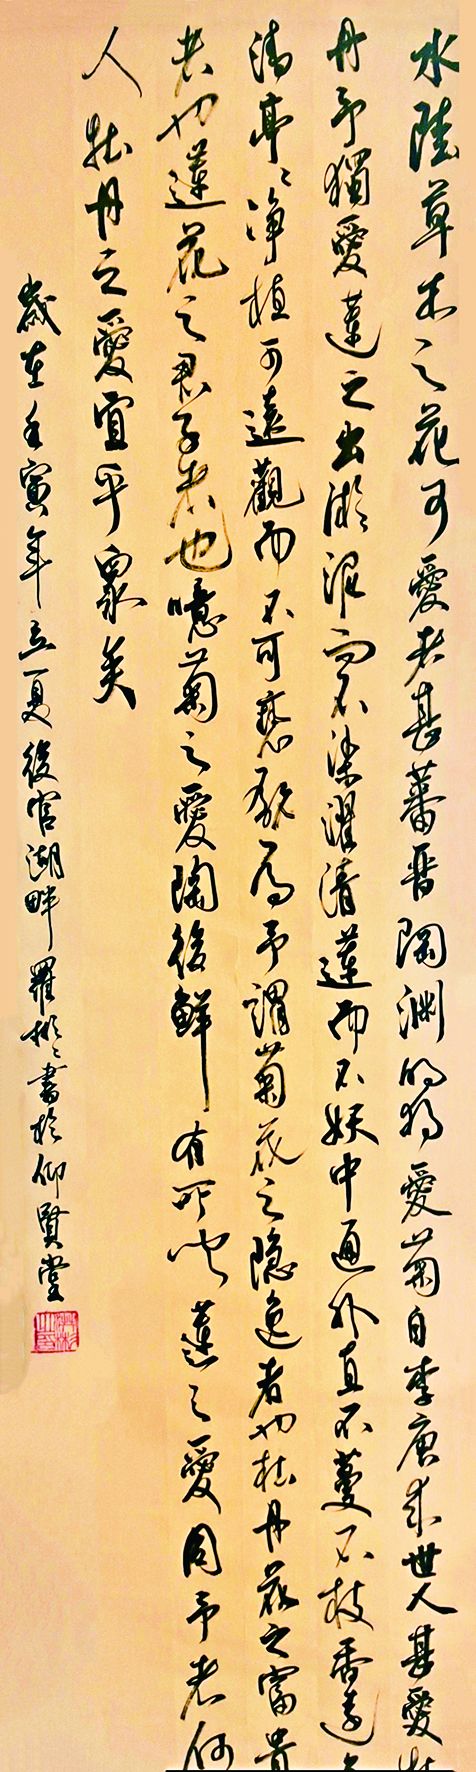 水陸草木之花可愛者甚蕃晋陶渊明独愛菊自李唐来世人甚愛牡
丹予獨愛蓮之出淤泥而不染濯清蓮而不妖中通外直不蔓不枝香遠
清亭亭净植可遠觀而不可亵翫焉予謂菊花之隐逸者也牡丹花之富貴
者也蓮花之君子者也噫菊之愛陶後鮮有所闻蓮之愛同予者何
人牡丹之愛宜乎衆矣
歲在壬寅年立夏後官湖畔羅彬彬書於仰賢堂